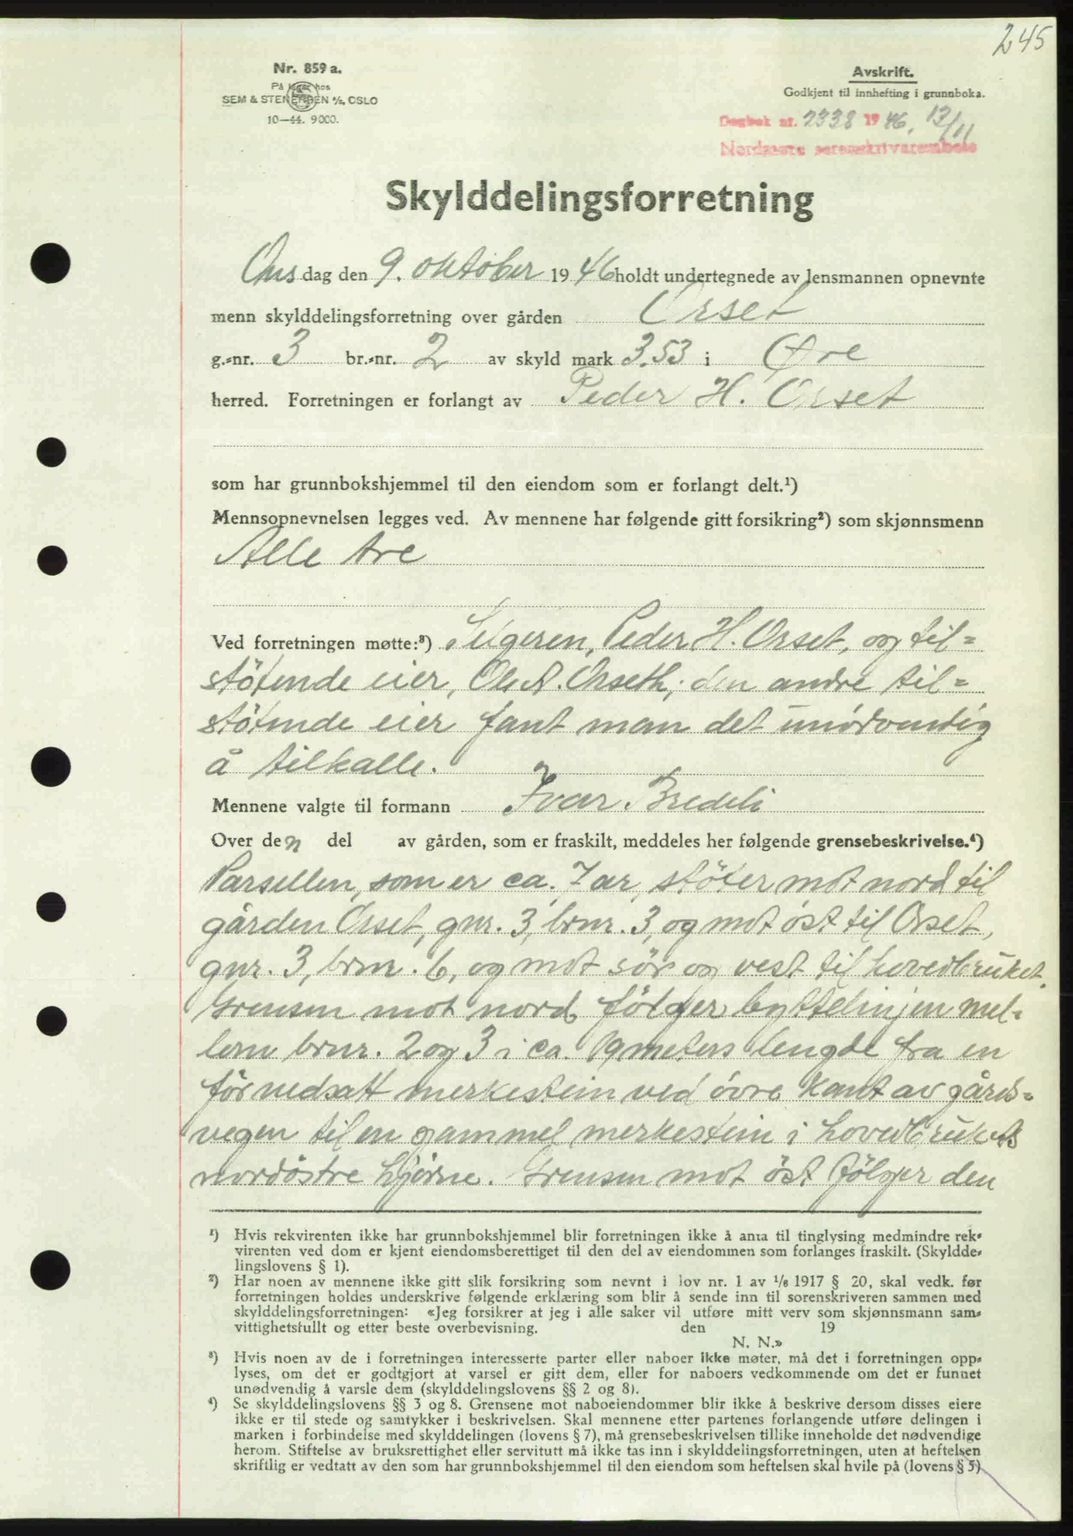 245
Nr. 859 a.
På lager hos
SEM & STENERSEN A/S, OSLO
10—44. 9000.
Avskrift.
Godkjent til innhefting i grunnboka.
Dagbok nr. 2338 1946, 12/11
Nordmøre sorenskriverembete
Skylddelingsforretning
Onsdag den 9. oktober 1946 holdt undertegnede av lensmannen opnevnte
menn skylddelingsforretning over gården Orset
g.-nr. 3 br.-nr. 2 av skyld mark 3.53 i Øre
herred. Forretningen er forlangt av Peder H. Orset
som har grunnbokshjemmel til den eiendom som er forlangt delt.¹)
Mennsopnevnelsen legges ved. Av mennene har følgende gitt forsikring²) som skjønnsmenn
Alle tre
Ved forretningen møtte:³) Selgeren, Peder H. Orset, og til=
støtende eier, Ole A. Orseth; den andre til=
støtende eier fant man det unødvendig
å tilkalle.
Mennene valgte til formann Ivar Bredeli
Over den del av gården, som er fraskilt, meddeles her følgende grensebeskrivelse.⁴)
Parsellen, som er ca. 7 ar, støter mot nord til
gården Orset, gnr. 3, brnr. 3, og mot øst til Orset,
gnr. 3, brnr. 6, og mot sør og vest til hovedbruket.
Grensen mot nord følger byttelinjen mel-
lem brnr. 2 og 3 i ca. 19 meters lengde fra en
før nedsatt merkestein ved øvre kant av gårds=
vegen til en gammel merkestein i hovedbrukets
nordøstre hjørne. Grensen mot øst følger den
¹) Hvis rekvirenten ikke har grunnbokshjemmel blir forretningen ikke å anta til tinglysing medmindre rek-
virenten ved dom er kjent eiendomsberettiget til den del av eiendommen som forlanges fraskilt. (Skyldde-
lingslovens § 1).
²) Har noen av mennene ikke gitt slik forsikring som nevnt i lov nr. 1 av 1/6 1917 § 20, skal vedk. før
forretningen holdes underskrive følgende erklæring som blir å sende inn til sorenskriveren sammen med
skylddelingsforretningen: «Jeg forsikrer at jeg i alle saker vil utføre mitt verv som skjønnsmann sam-
vittighetsfullt og etter beste overbevisning. den 19
N. N.»
³) Hvis noen av de i forretningen interesserte parter eller naboer ikke møter, må det i forretningen opp-
lyses, om det er godtgjort at varsel er gitt dem, eller for naboers vedkommende om det er funnet
unødvendig å varsle dem (skylddelingslovens §§ 2 og 8).
⁴) Se skylddelingslovens §§ 3 og 8. Grensene mot naboeiendommer blir ikke å beskrive dersom disses eiere
ikke er til stede og samtykker i beskrivelsen. Skal mennene etter partenes forlangende utføre delingen i
marken i forbindelse med skylddelingen (lovens § 7), må grensebeskrivelsen tillike inneholde det nødvendige
herom. Stiftelse av bruksrettighet eller servitutt må ikke tas inn i skylddelingsforretningen, uten at heftelsen
skriftlig er vedtatt av den som har grunnbokshjemmel til den eiendom som heftelsen skal hvile på (lovens § 5)